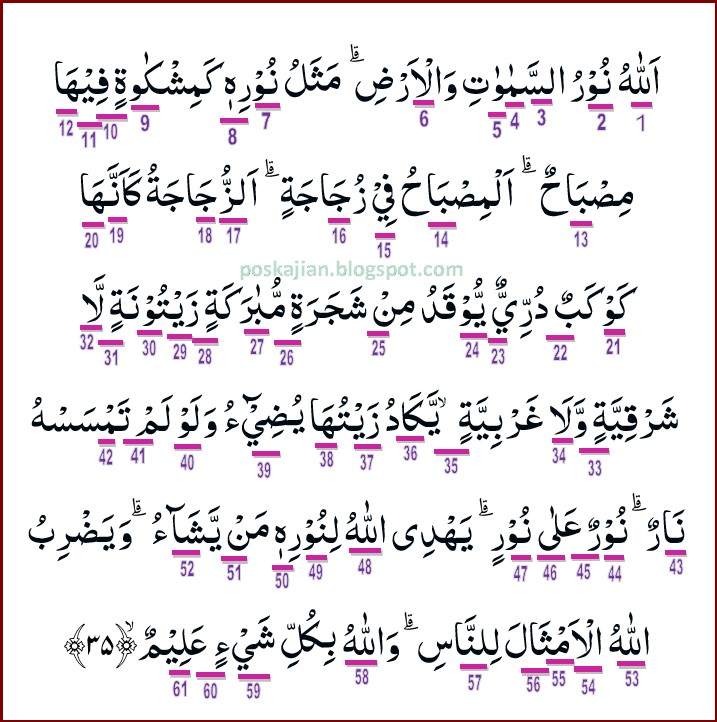 اَللّٰهُ نُوْرُ السَّمٰوٰتِ وَالْاَرْضِ ۗ مَثَلُ نُوْرِهٖ كَمِشْكٰوةٍ فِيْهَا
1 2 3 4 5 6 7 8 9 10 11 12
مِصْبَاحٌ ۗ اَلْمِصْبَاحُ فِيْ زُجَاجَةٍ ۗ اَلزُّجَاجَةُ كَاَنَّهَا
13 14 15 16 17 18 19 20
poskajian.blogspot.com
كَوْكَبٌ دُرِّيٌّ يُّوْقَدُ مِنْ شَجَرَةٍ مُّبٰرَكَةٍ زَيْتُوْنَةٍ لَّا
21 22 23 24 25 26 27 28 29 30 31 32
شَرْقِيَّةٍ وَّلَا غَرْبِيَّةٍ ۙ يَّكَادُ زَيْتُهَا يُضِيْۤءُ وَلَوْ لَمْ تَمْسَسْهُ
33 34 35 36 37 38 39 40 41 42
نَارٌ ۗ نُوْرٌ عَلٰى نُوْرٍ ۗ يَهْدِى اللّٰهُ لِنُوْرِهٖ مَنْ يَّشَاۤءُ ۗ وَيَضْرِبُ
43 44 45 46 47 48 49 50 51 52
اللّٰهُ الْاَمْثَالَ لِلنَّاسِ ۗ وَاللّٰهُ بِكُلِّ شَيْءٍ عَلِيْمٌ ۙ ﴿٣٥﴾
53 54 55 56 57 58 59 60 61